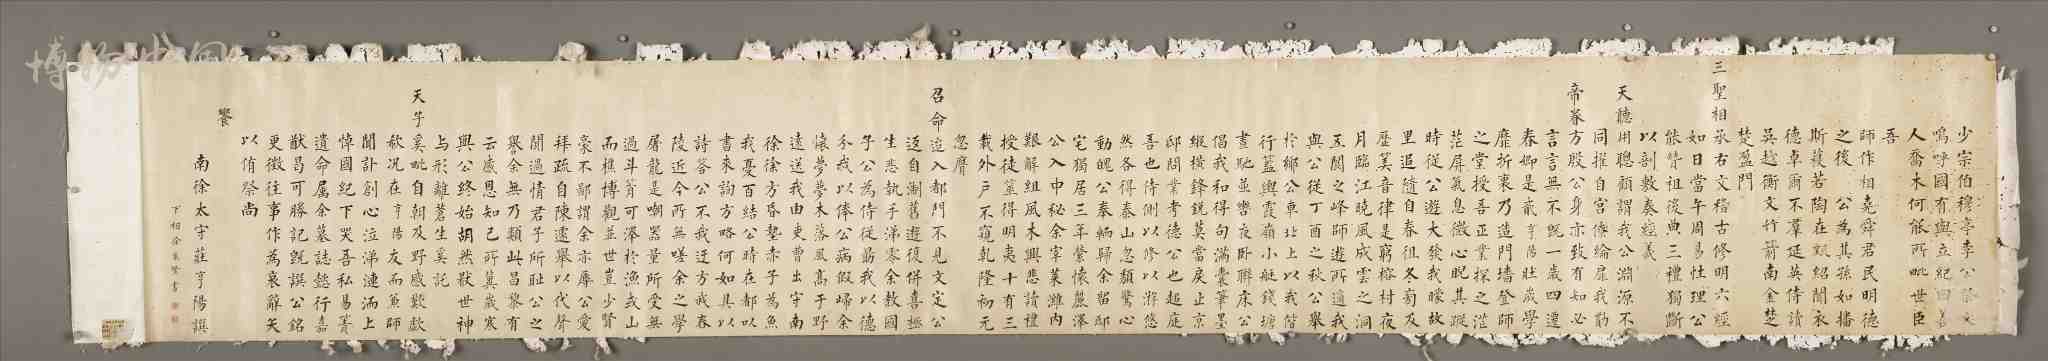 少宗伯穆亭李公祭文
嗚呼國有與立紀曰善
人喬木何能所毗世臣
吾
師作相堯舜君民明德
之後公為其孫如播
斯穫若陶在甄紹聞衣
德卓爾不羣延英侍讀
吳越衡文竹箭南金楚
楚盈門
三聖相承右文稽古修明六經
如日當午周易性理公
能贊祖後典三禮獨斷
以剖敷奏經義
天聽用聰顧謂我公淵源不
同擢自宮傳綸扉我勩
帝眷方殷公身亦致有知必
言言無不既一歲四遷
春卿是貳亨陽壯歲學
靡折衷乃造門墻登師
之堂授吾正業探之茫
茫屏氣息微心眤其蹤
歷算音律是窮榕村夜
月臨江曉風成雲之洞
五閱之峰師遊所適我
與公從丁酉之秋公舉
於鄉公車北上以我偕
行藍輿霞嶺小艇錢塘
晝馳並轡夜卧聯床公
倡我和得句滿囊筆墨
縱橫鋒銳莫當戾止京
邸問業考德公也趨庭
吾也侍側以修以游悠
然各得泰山忽頹驚心
動魄公奉輀歸余留邸
宅獨居三年縈懷麗澤
公入中秘余宰萊濰內
艱解組風木興悲讀禮
授徒筮得明夷十有三
載外戶不窺乾隆初元
忽膺
召命追入都門不見文定公
返自湖舊遊復併喜極
生悲執手涕零余教國
子公為侍從勗我以德
不我以俸公病假歸余
懷夢夢木落風高于野
遠送我由東曹出守南
徐徐方昏墊赤子為魚
我憂百結公時在都以
書來詢方略何如具以
詩答公不我迂方我春
陵近今所無嗟余之學
屠龍是嘲器量所受無
過斗筲可澤於漁或山
而樵博觀並世豈少賢
豪不鄙謂余余亦犀公
拜疏自陳遽舉以代聲
聞過情君子所恥公之
譽余無乃類此昌黎有
云感恩知己所冀歲寒
與公終始胡然厭世神
與形離蒼生奚託
天子奚毗自朝及野感歎歔
欷況在亨陽友而兼師
聞訃創心泣涕漣洏上
悼國紀下哭吾私易簀
遺命屬余墓誌懿行嘉
猷曷可勝記既譔公銘
更徵往事作為哀辭矢
以侑祭尚
饗
南徐太守莊亨陽譔